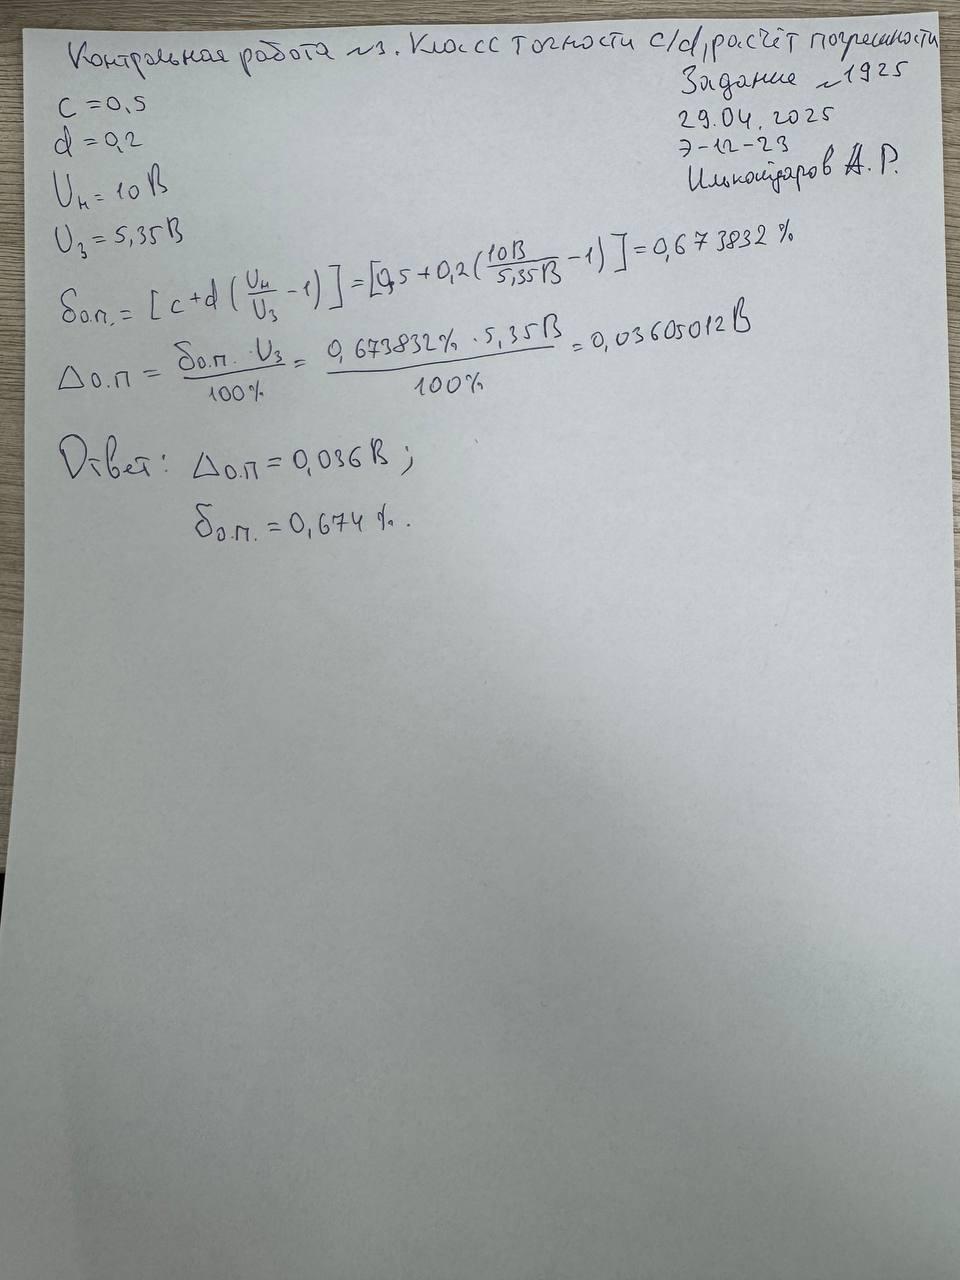 Контрольная работа №3. Класс точности c/d, расчёт погрешности
Задание №1925
29.04.2025
Э-12-23
А.Р.
c = 0,5
d = 0,2
Uн = 10 В
Uз = 5,35 В
δо.п. = [c + d (Uн/Uз - 1)] = [0,5 + 0,2 (10В/5,35В - 1)] = 0,673832 %
Δо.п = δо.п. · Uз / 100% = 0,673832% · 5,35В / 100% = 0,03605012 В
Ответ: Δо.п = 0,036 В ;
δо.п. = 0,674 %.